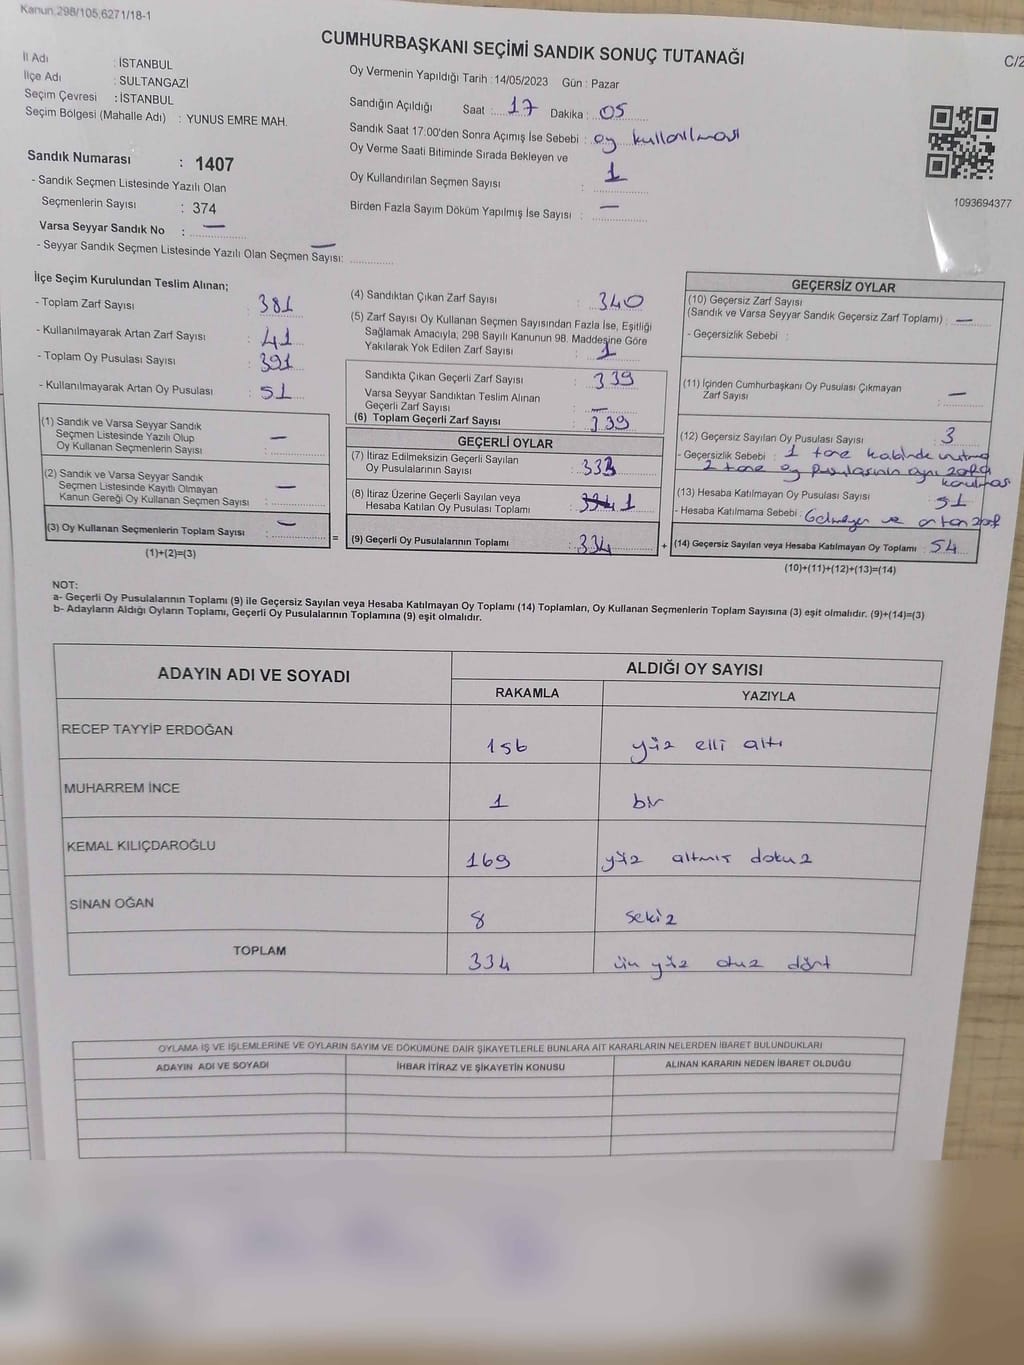 Kanun.298/105,6271/18-1
CUMHURBAŞKANI SEÇİMİ SANDIK SONUÇ TUTANAĞI
C/2
İl Adı : İSTANBUL
İlçe Adı : SULTANGAZİ
Seçim Çevresi : İSTANBUL
Seçim Bölgesi (Mahalle Adı) : YUNUS EMRE MAH.
Sandık Numarası : 1407
- Sandık Seçmen Listesinde Yazılı Olan
Seçmenlerin Sayısı : 374
Varsa Seyyar Sandık No : —
- Seyyar Sandık Seçmen Listesinde Yazılı Olan Seçmen Sayısı: —
Oy Vermenin Yapıldığı Tarih : 14/05/2023 Gün : Pazar
Sandığın Açıldığı Saat : 17 Dakika : 05
Sandık Saat 17:00'den Sonra Açımış İse Sebebi : oy kullanılması
Oy Verme Saati Bitiminde Sırada Bekleyen ve
Oy Kullandırılan Seçmen Sayısı : 1
Birden Fazla Sayım Döküm Yapılmış İse Sayısı : —
1093694377
İlçe Seçim Kurulundan Teslim Alınan;
- Toplam Zarf Sayısı : 381
- Kullanılmayarak Artan Zarf Sayısı : 41
- Toplam Oy Pusulası Sayısı : 391
- Kullanılmayarak Artan Oy Pusulası : 51
(1) Sandık ve Varsa Seyyar Sandık
Seçmen Listesinde Yazılı Olup
Oy Kullanan Seçmenlerin Sayısı : —
(2) Sandık ve Varsa Seyyar Sandık
Seçmen Listesinde Kayıtlı Olmayan
Kanun Gereği Oy Kullanan Seçmen Sayısı : —
(3) Oy Kullanan Seçmenlerin Toplam Sayısı : —
(1)+(2)=(3)
=
(4) Sandıktan Çıkan Zarf Sayısı : 340
(5) Zarf Sayısı Oy Kullanan Seçmen Sayısından Fazla İse, Eşitliği
Sağlamak Amacıyla, 298 Sayılı Kanunun 98. Maddesine Göre
Yakılarak Yok Edilen Zarf Sayısı : 1
Sandıkta Çıkan Geçerli Zarf Sayısı : 339
Varsa Seyyar Sandıktan Teslim Alınan
Geçerli Zarf Sayısı : —
(6) Toplam Geçerli Zarf Sayısı : 339
GEÇERLİ OYLAR
(7) İtiraz Edilmeksizin Geçerli Sayılan
Oy Pusulalarının Sayısı : 333
(8) İtiraz Üzerine Geçerli Sayılan veya
Hesaba Katılan Oy Pusulası Toplamı : 1
(9) Geçerli Oy Pusulalarının Toplamı : 334
+
GEÇERSİZ OYLAR
(10) Geçersiz Zarf Sayısı
(Sandık ve Varsa Seyyar Sandık Geçersiz Zarf Toplamı) : —
- Geçersizlik Sebebi :
(11) İçinden Cumhurbaşkanı Oy Pusulası Çıkmayan
Zarf Sayısı : —
(12) Geçersiz Sayılan Oy Pusulası Sayısı : 3
- Geçersizlik Sebebi : 1 tane kabinde unutma
2 tane oy pusulasının aynı zarfa
konulması
(13) Hesaba Katılmayan Oy Pusulası Sayısı 51
- Hesaba Katılmama Sebebi : Gelmeyen ve artan zarf
(14) Geçersiz Sayılan veya Hesaba Katılmayan Oy Toplamı : 54
(10)+(11)+(12)+(13)=(14)
NOT:
a- Geçerli Oy Pusulalarının Toplamı (9) ile Geçersiz Sayılan veya Hesaba Katılmayan Oy Toplamı (14) Toplamları, Oy Kullanan Seçmenlerin Toplam Sayısına (3) eşit olmalıdır. (9)+(14)=(3)
b- Adayların Aldığı Oyların Toplamı, Geçerli Oy Pusulalarının Toplamına (9) eşit olmalıdır.
ADAYIN ADI VE SOYADI
ALDIĞI OY SAYISI
RAKAMLA YAZIYLA
RECEP TAYYİP ERDOĞAN 156 yüz elli altı
MUHARREM İNCE 1 bir
KEMAL KILIÇDAROĞLU 169 yüz altmış dokuz
SİNAN OĞAN 8 sekiz
TOPLAM 334 üç yüz otuz dört
OYLAMA İŞ VE İŞLEMLERİNE VE OYLARIN SAYIM VE DÖKÜMÜNE DAİR ŞİKAYETLERLE BUNLARA AİT KARARLARIN NELERDEN İBARET BULUNDUKLARI
ADAYIN ADI VE SOYADI İHBAR İTİRAZ VE ŞİKAYETİN KONUSU ALINAN KARARIN NEDEN İBARET OLDUĞU